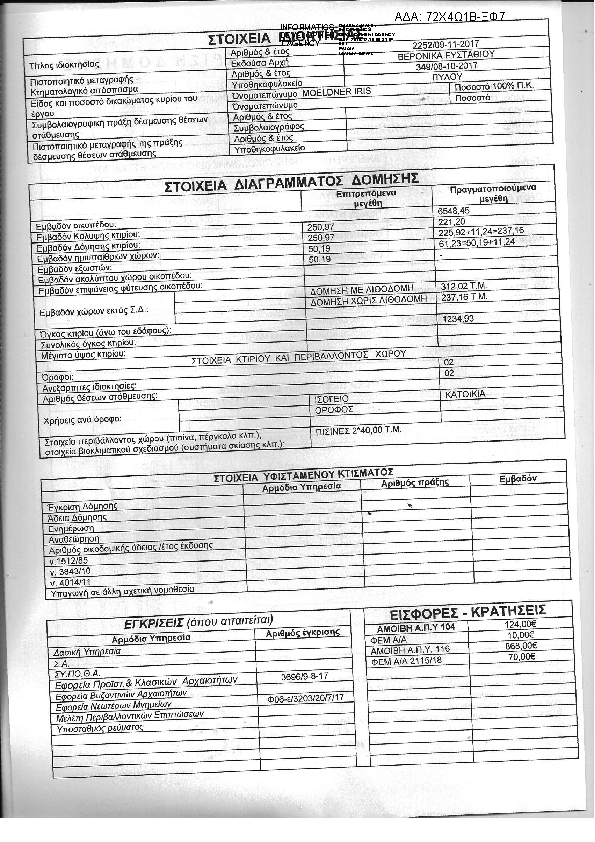 ΑΔΑ: 72Χ4Ω1Β-ΞΦ7
INFORMATICS
AGENCY
ΣΤΟΙΧΕΙΑ ΙΔΙΟΚΤΗΣΙΑΣ
Τίτλος ιδιοκτησίας Αριθμός & έτος 2252/09-11-2017
Εκδούσα Αρχή ΒΕΡΟΝΙΚΑ ΕΥΣΤΑΘΙΟΥ
Πιστοποιητικό μεταγραφής Αριθμός & έτος 349/08-10-2017
Κτηματολογικό απόσπασμα Υποθηκοφυλακείο ΠΥΛΟΥ
Είδος και ποσοστό δικαιώματος κυρίου του έργου Ονοματεπώνυμο MOELDNER IRIS Ποσοστό 100% Π.Κ.
Ονοματεπώνυμο Ποσοστό
Συμβολαιογραφική πράξη δέσμευσης θέσεων στάθμευσης Αριθμός & έτος
Συμβολαιογράφος
Πιστοποιητικό μεταγραφής της πράξης δέσμευσης θέσεων στάθμευσης Αριθμός & έτος
Υποθηκοφυλακείο
ΣΤΟΙΧΕΙΑ ΔΙΑΓΡΑΜΜΑΤΟΣ ΔΟΜΗΣΗΣ
Επιτρεπόμενα μεγέθη Πραγματοποιούμενα μεγέθη
Εμβαδόν οικοπέδου: 6548,45
Εμβαδόν Κάλυψης κτιρίου: 250,97 221,20
Εμβαδόν Δόμησης κτιρίου: 250,97 225,92+11,24=237,16
Εμβαδόν ημιυπαίθριων χώρων: 50,19 61,23=50,19+11,24
Εμβαδόν εξωστών: 50,19
Εμβαδόν ακαλύπτου χώρου οικοπέδου:
Εμβαδόν επιφάνειας φύτευσης οικοπέδου:
Εμβαδόν χώρων εκτός Σ.Δ.: ΔΟΜΗΣΗ ΜΕ ΛΙΘΟΔΟΜΗ 312,02 Τ.Μ.
ΔΟΜΗΣΗ ΧΩΡΙΣ ΛΙΘΟΔΟΜΗ 237,16 Τ.Μ.
Όγκος κτιρίου (άνω του εδάφους): 1234,93
Συνολικός όγκος κτιρίου:
Μέγιστο ύψος κτιρίου:
ΣΤΟΙΧΕΙΑ ΚΤΙΡΙΟΥ ΚΑΙ ΠΕΡΙΒΑΛΛΟΝΤΟΣ ΧΩΡΟΥ
Όροφοι: 02
Ανεξάρτητες ιδιοκτησίες: 02
Αριθμός θέσεων στάθμευσης:
Χρήσεις ανά όροφο: ΙΣΟΓΕΙΟ ΚΑΤΟΙΚΙΑ
ΟΡΟΦΟΣ
Στοιχεία περιβάλλοντος χώρου (πισίνα, πέργκολα κλπ.), στοιχεία βιοκλιματικού σχεδιασμού (συστήματα σκίασης κλπ.): ΠΙΣΙΝΕΣ 2*40,00 Τ.Μ.
ΣΤΟΙΧΕΙΑ ΥΦΙΣΤΑΜΕΝΟΥ ΚΤΙΣΜΑΤΟΣ
Αρμόδια Υπηρεσία Αριθμός πράξης Εμβαδόν
Έγκριση Δόμησης
Άδεια Δόμησης
Ενημέρωση
Αναθεώρηση
Αριθμός οικοδομικής άδειας /έτος έκδοσης
ν.1512/85
ν. 3843/10
ν. 4014/11
Υπαγωγή σε άλλη σχετική νομοθεσία
ΕΓΚΡΙΣΕΙΣ (όπου απαιτείται)
Αρμόδια Υπηρεσία Αριθμός έγκρισης
Δασική Υπηρεσία
Σ.Α.
ΣΥ.ΠΟ.Θ.Α.
Εφορεία Προϊστ.& Κλασικών Αρχαιοτήτων 3696/9-8-17
Εφορεία Βυζαντινών Αρχαιοτήτων
Εφορεία Νεωτέρων Μνημείων Φ06-ε/3203/20/7/17
Μελέτη Περιβαλλοντικών Επιπτώσεων
Υποσταθμός ρεύματος
ΕΙΣΦΟΡΕΣ - ΚΡΑΤΗΣΕΙΣ
ΑΜΟΙΒΗ Α.Π.Υ 104 124,00€
ΦΕΜ Α/Α 10,00€
ΑΜΟΙΒΗ Α.Π.Υ. 116 868,00€
ΦΕΜ Α/Α 2115/18 70,00€